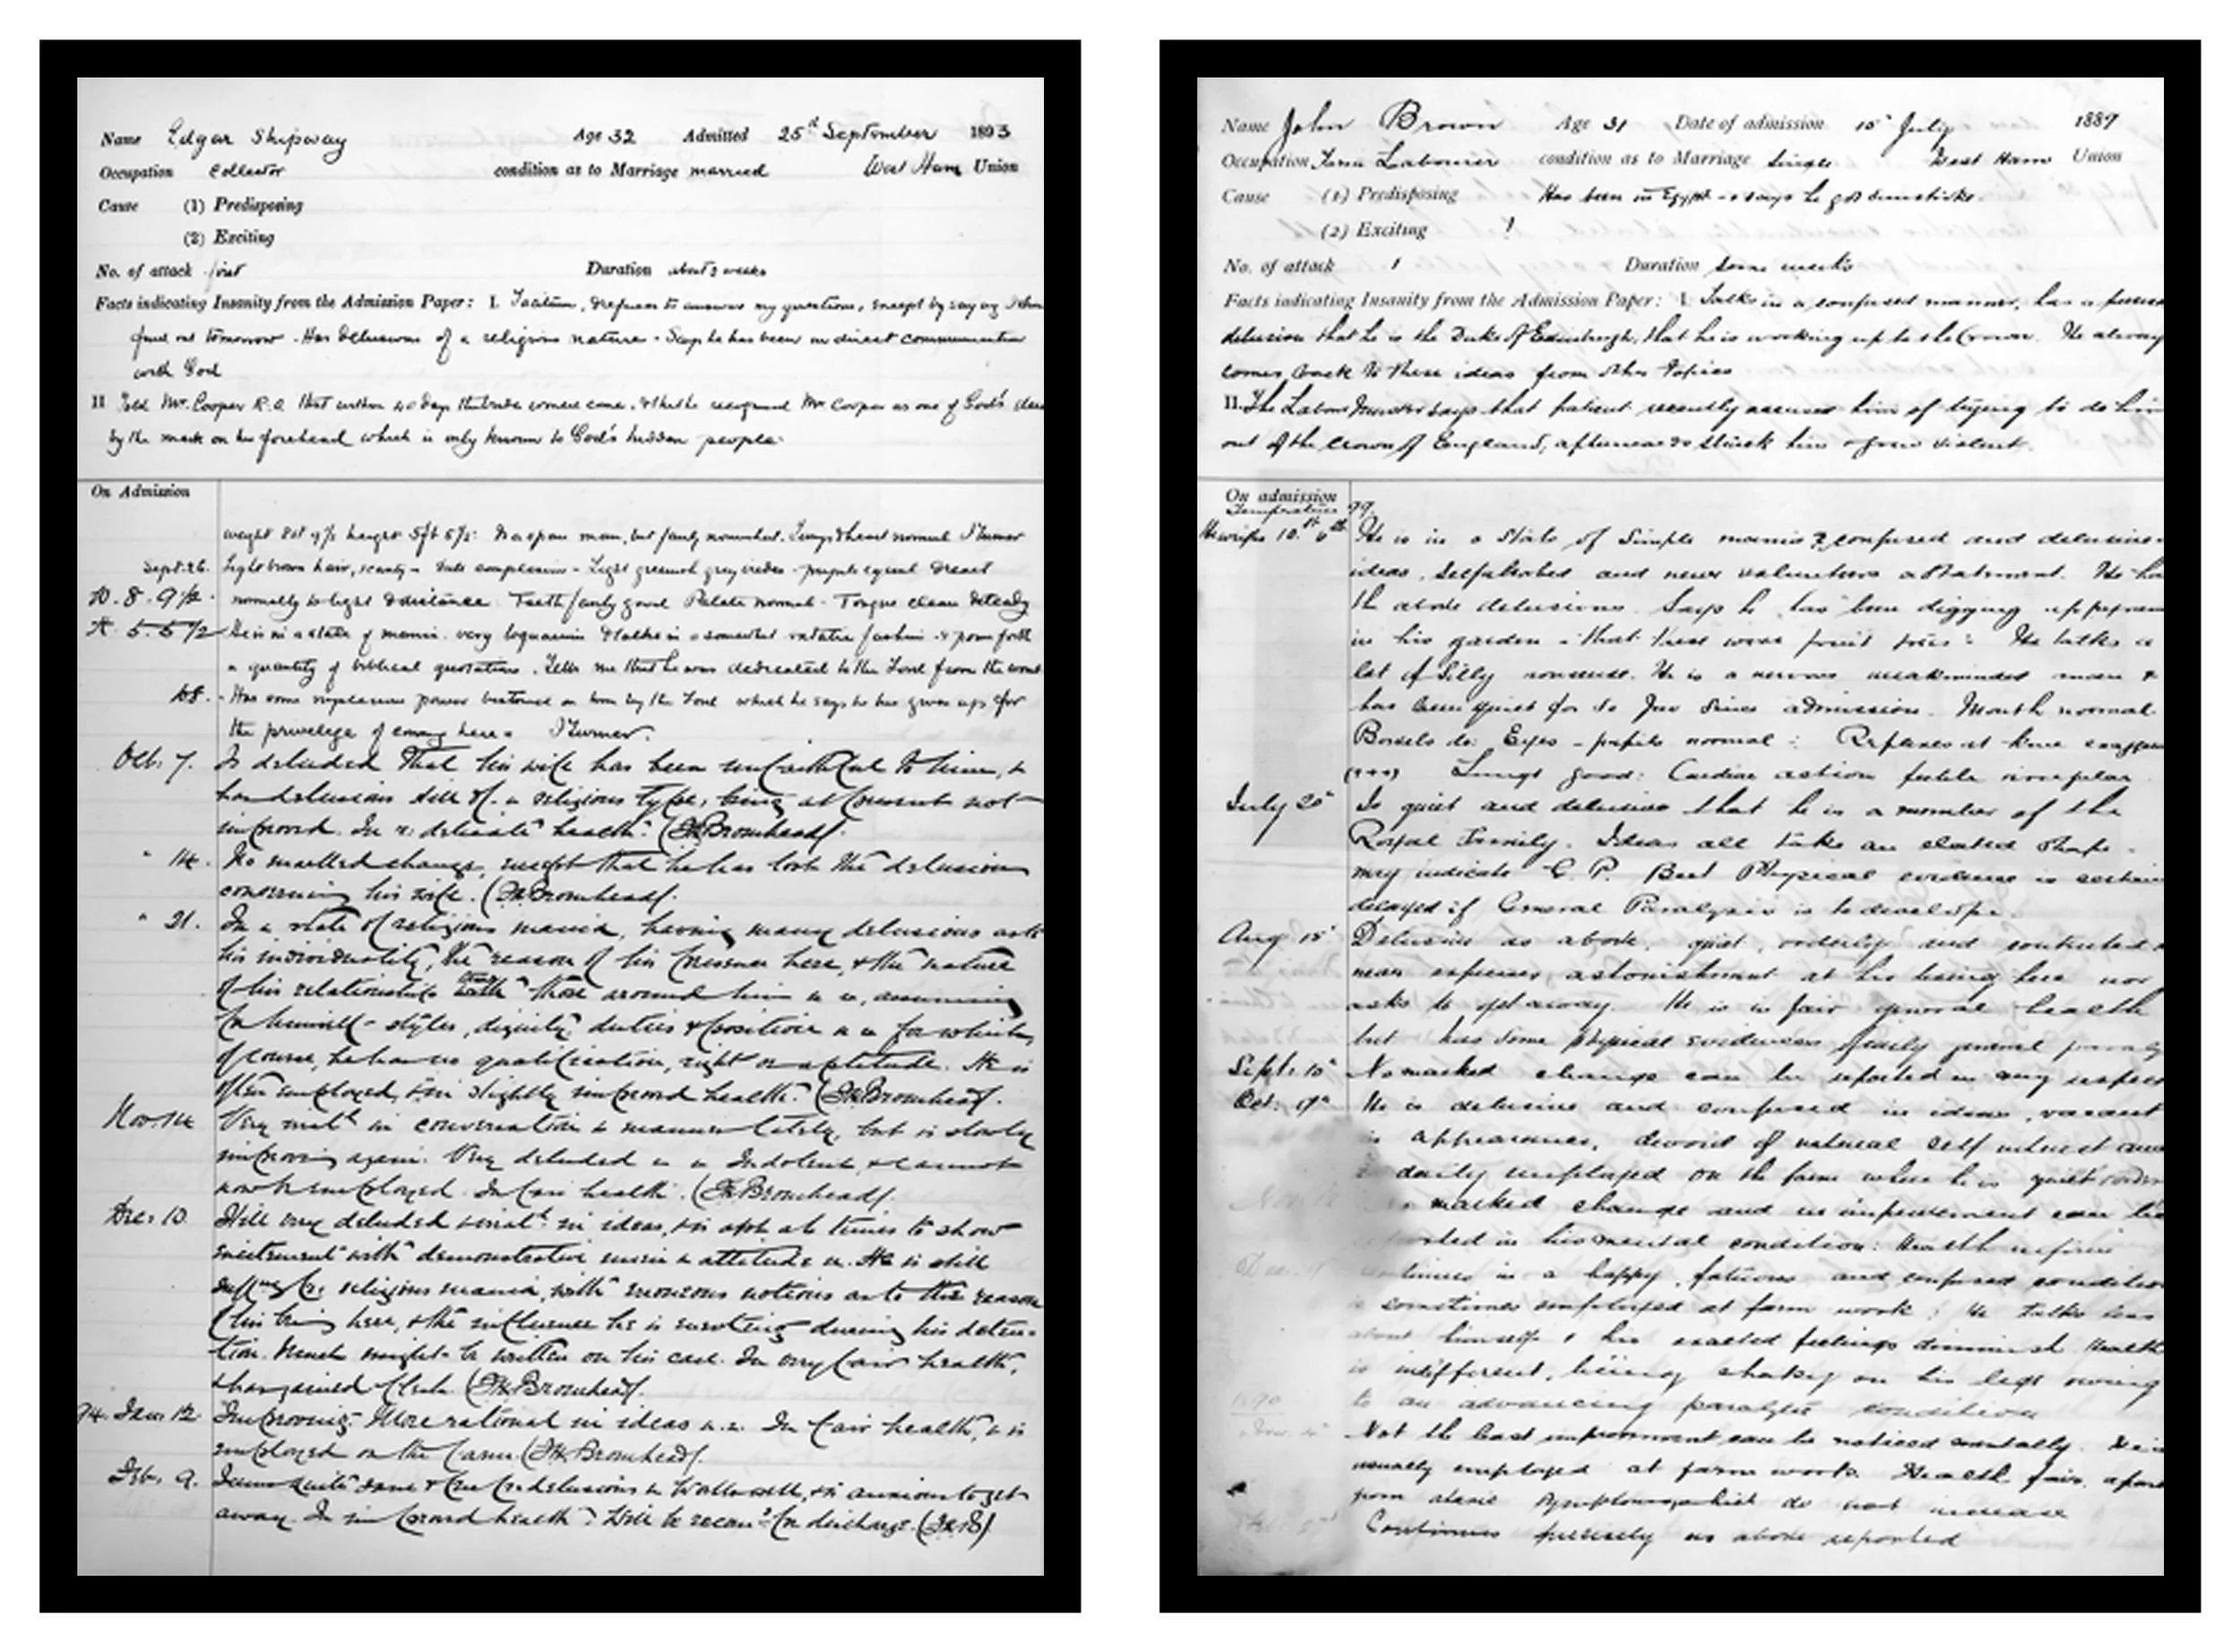 Name Edgar Shipway Age 32 Admitted 25th September 1893
Occupation Collector condition as to Marriage married West Ham Union
Cause (1) Predisposing
(2) Exciting
No. of attack first Duration about 2 weeks
Facts indicating Insanity from the Admission Paper: I. Taciturn, refuses to answer my questions, except by saying I shall
find out tomorrow. Has delusions of a religious nature. Says he has been in direct communication
with God
II Told Mr. Cooper R.O. that within 40 days the come. & that he recognised Mr Cooper as one of God's
by the mark on his forehead which is only known to God's hidden people.
On Admission
weight 8st 9½ height 5ft 5½. Is a spare man, but fairly nourished. Lungs & heart normal J Turner
Sept. 26. Light brown hair, scanty - complexion - Light greenish grey irides - pupils equal & react
W. 8. 9½. normally to light & distance. Teeth fairly good Palate normal. Tongue clean steady
H. 5. 5½ He is in a state of mania. very loquacious & talks in a somewhat fashion & pours forth
a quantity of biblical quotations. Tells me that he was dedicated to the Lord from the womb
Has some mysterious power bestowed on him by the Lord which he says he has given up for
the privelege of coming here. J Turner.
Oct. 7. Is deluded that his wife has been unfaithful to him, &
has delusions still of a religious type, being at present not
improved. In v. delicate health. (F.H. Bromhead).
" 14. No marked change, except that he has lost the delusion
concerning his wife. (F.H. Bromhead).
" 21. In a state of religious mania, having many delusions as to
his individuality, the reason of his presence here, & the nature
of his relationship with those around him &c, assuming
to himself styles, dignity, duties & position &c for which,
of course, he has no qualification, right or aptitude. He is
often employed, & in slightly improved health. (F.H. Bromhead).
Nov. 14 Very in conversation & manner lately, but is slowly
improving again. Very deluded &c Indolent, & cannot
now be employed. In fair health. (F.H. Bromhead).
Dec. 10. Still very deluded & in ideas, & is apt at times to show
excitement with demonstrative mien & attitude &c. He is still
suffng fr. religious mania, with erroneous notions as to the reason
of his being here, & the influence he is exerting during his deten-
tion. Much might be written on his case. In very fair health,
& has gained flesh. (F.H. Bromhead).
94. Jan. 12. Improving. More rational in ideas &c. In fair health, & is
employed on the farm. (F.H. Bromhead).
Feb. 9. Seems quite sane & free fr. delusions & is anxious to get
away. In improved health. Will be recomd for discharge. (F.H.B)
Name John Brown Age 31 Date of admission 15th July 1889
Occupation Farm Labourer condition as to Marriage Single West Ham Union
Cause (1) Predisposing Has been in Egypt - & says he got sunstroke.
(2) Exciting
No. of attack 1 Duration Some weeks
Facts indicating Insanity from the Admission Paper: I. Talks in a confused manner, has a
delusion that he is the Duke of Edinburgh, that he is working up to the Crown. He always
comes back to these ideas from other topics
II. The Labour Master says that patient recently accused him of trying to do him
out of the Crown of England, afterwards struck him & grew violent.
On admission
Temperature 99.
He weighs 10.st 6lb He is in a state of Simple mania & confused and delusive
ideas, Selfabsorbed and never volunteers a statement. He has
the above delusions. Says he has been digging up
in his garden - that these were fruit trees: He talks a
lot of Silly nonsense. He is a nervous weakminded man &
has been quiet for so far since admission. Mouth normal
Bowels do: Eyes - pupils normal: Reflexes at knee
Lungs good: Cardiac action feeble irregular
July 20th Is quiet and delusive that he is a member of the
Royal Family. Ideas all take an elated shape -
may indicate G. P. But Physical evidence is certainly
delayed if General Paralysis is to develope.
Aug 15th Delusive as above, quiet, orderly and contented &
never expresses astonishment at his being here nor
asks to get away. He is in fair general health
but has some physical evidences of early general
Sept. 10th No marked change can be reported in any respect
Oct. 9th He is delusive and confused in ideas, vacant
in appearance, devoid of natural self interest and
is daily employed on the farm where he is quiet
marked change and no improvement can be
in his mental condition: Health
in a happy, fatuous and confused condition
is sometimes employed at farm work: He talks less
about himself & his exalted feelings diminish Health
is indifferent, being shaky on his legs owing
to an advancing paralytic condition
1890
Not the least improvement can be noticed mentally. He is
usually employed at farm work. Health fair, apart
from above symptoms which do not increase
Continues precisely as above reported